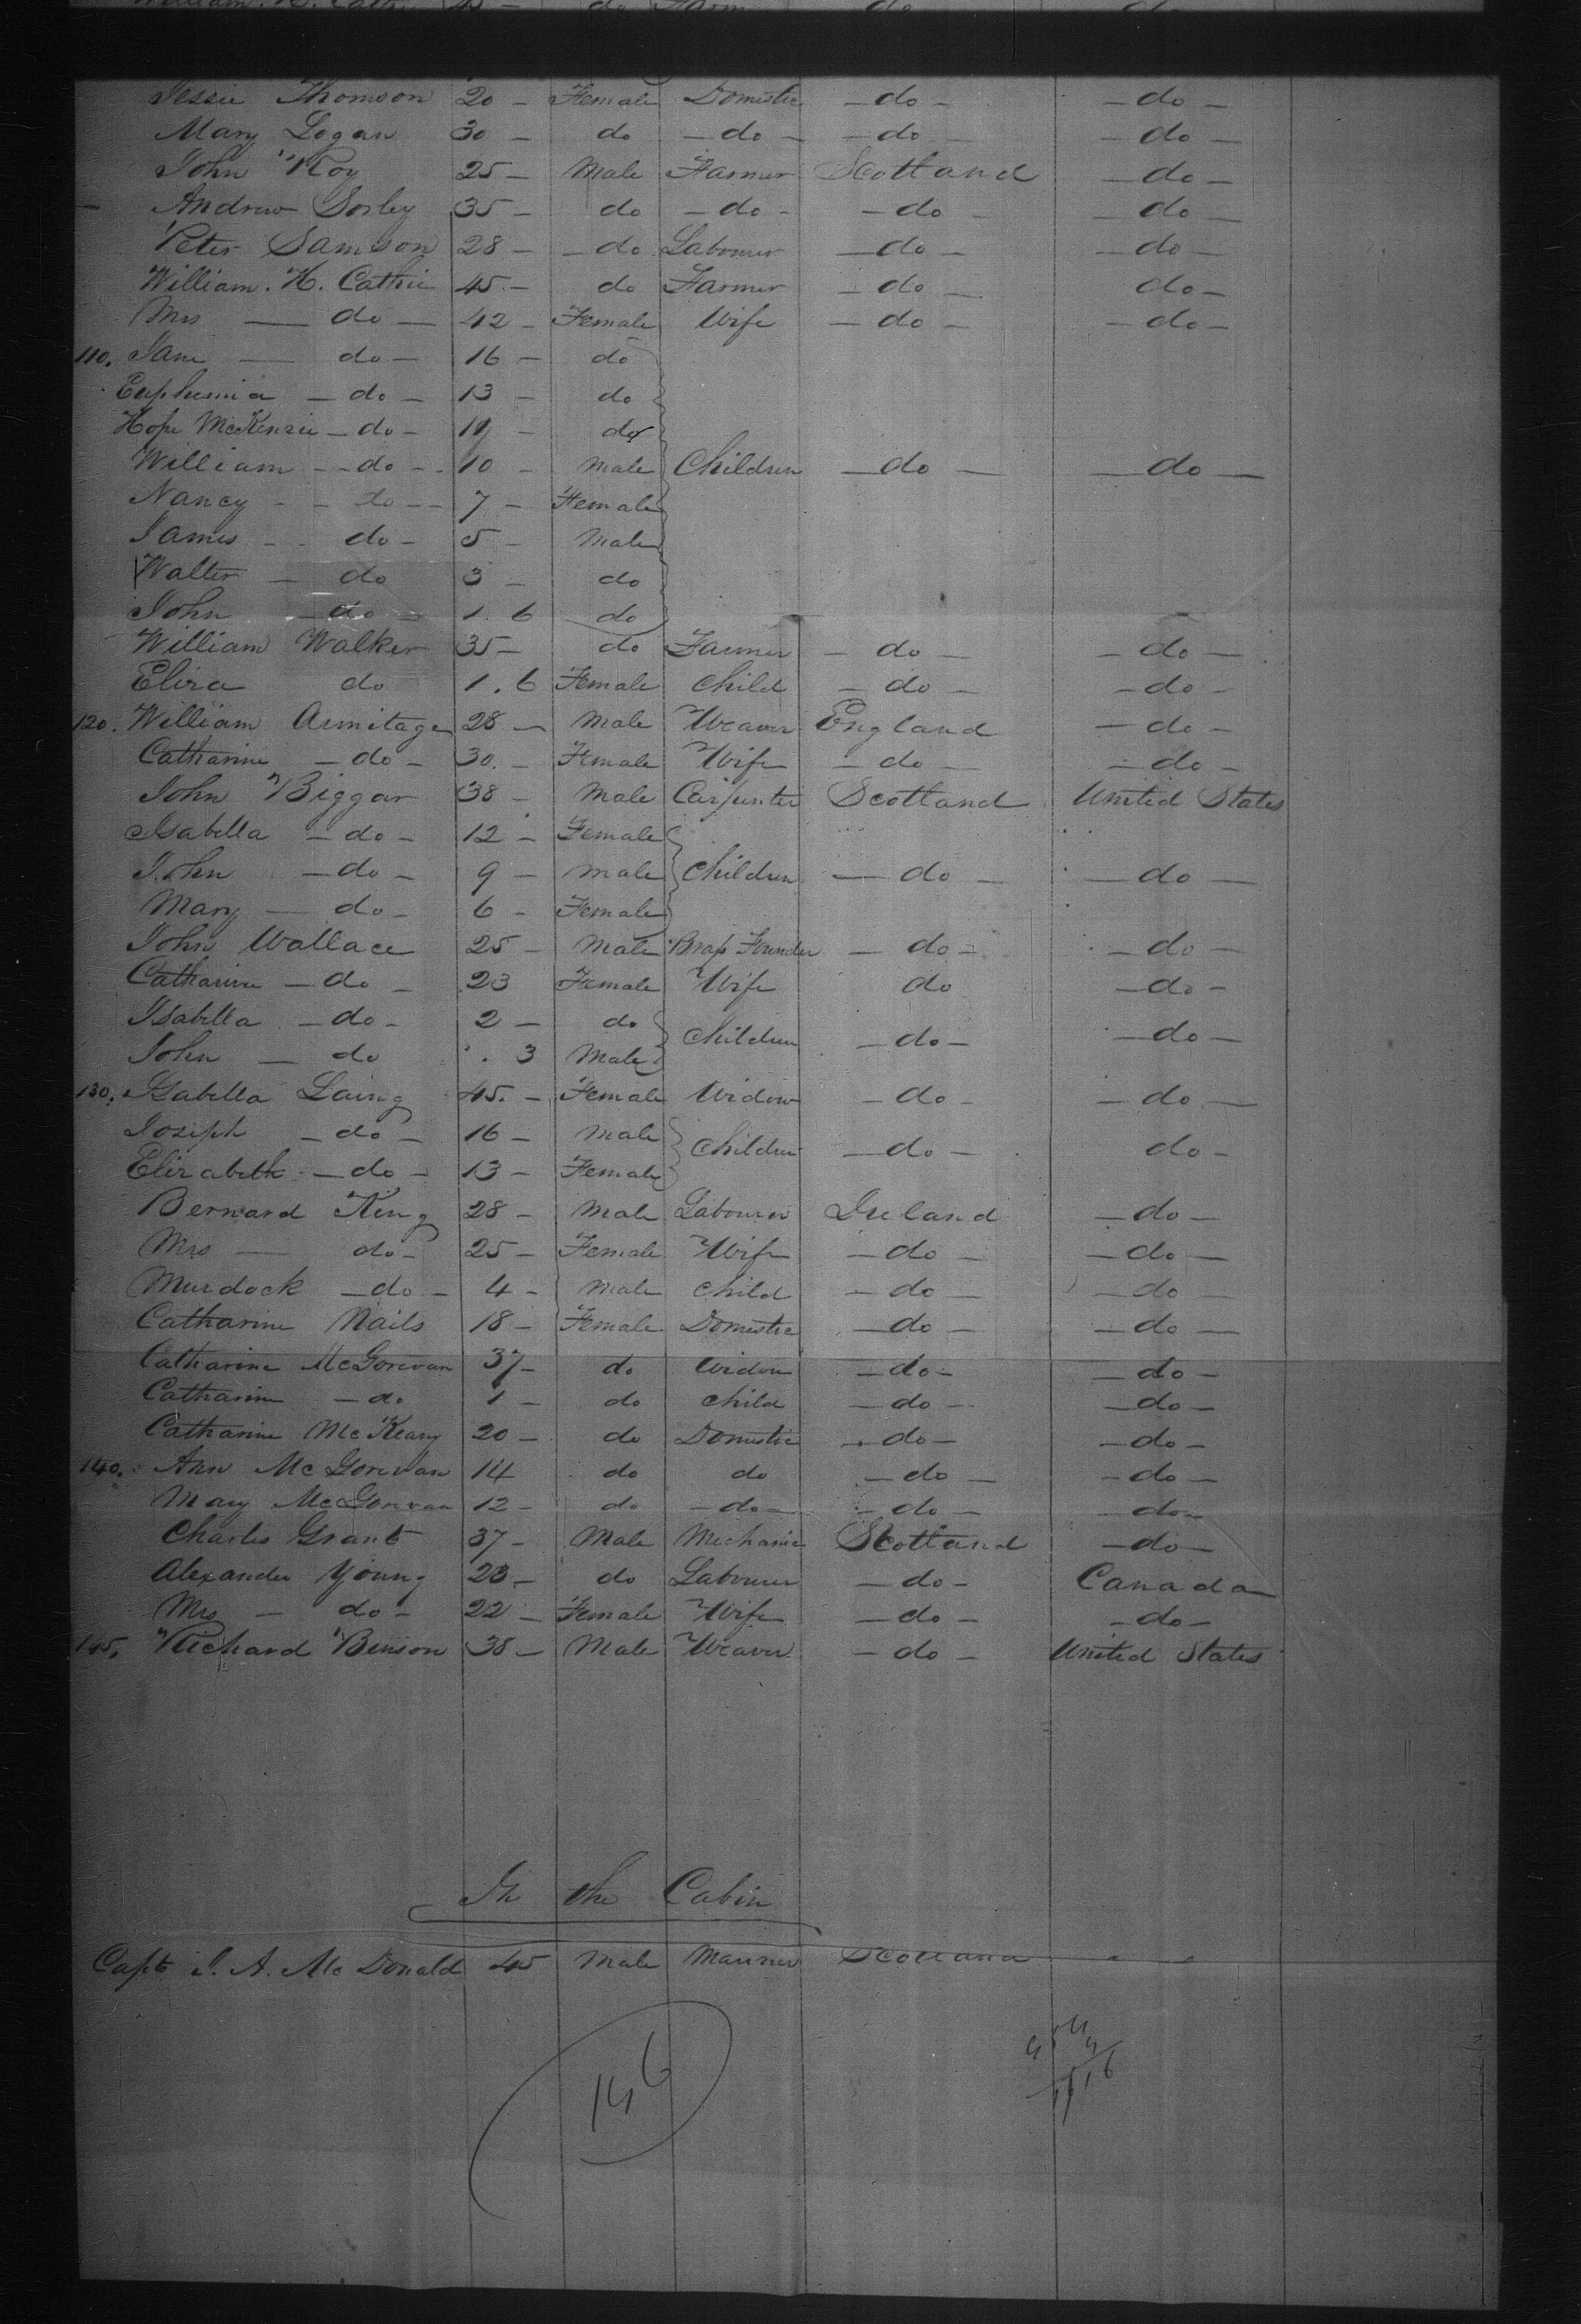 Jessie Thomson 20 - Female Domestic - do - - do -
Mary Logan 30 - do - do - - do - - do -
John Roy 25 - Male Farmer Scotland - do -
Andrew Sorley 35 - do - do - - do - - do -
Peter Samson 28 - - do Labourer - do - - do -
William. H. Cathie 45 - do Farmer - do - do -
Mrs - do - 42 - Female Wife - do - - do -
110. Jane - do - 16 - do
Euphemia - do - 13 - do
Hope McKenzie - do - 11 - do
William - do - 10 - Male Children - do - - do -
Nancy - do - 7 - Female
James - do - 5 - Male
Walter - do 3 - do
John - do - 1. 6 do
William Walker 35 - do Farmer - do - - do -
Eliza do 1. 6 Female Child - do - - do -
120. William Armitage 28 - Male Weaver England - do -
Catharine - do - 30. - Female Wife - do - - do -
John Biggar 38 - Male Carpenter Scotland United States
Isabella - do - 12 - Female
John - do - 9 - Male Children - do - - do -
Mary - do - 6 - Female
John Wallace 25 - Male Brass Founder - do - - do -
Catharine - do - 23 Female Wife do - do -
Isabella - do - 2 - do Children - do - - do -
John - do . 3 Male
130. Isabella Laing 45. - Female Widow - do - - do -
Joseph - do - 16 - Male Children - do - do -
Elizabeth - do - 13 - Female
Bernard King 28 - Male Labourer Ireland - do -
Mrs - do - 25 - Female Wife - do - - do -
Murdock - do - 4 - Male Child - do - - do -
Catharine Nails 18 - Female Domestic - do - - do -
Catharine McGorevan 37 - do Widow - do - - do -
Catharine - do 1 - do Child - do - - do -
Catharine McKeary 20 - do Domestic - do - - do -
140. Ann McGorevan 14 do do - do - - do -
Mary McGorevan 12 - do - do - - do - - do -
Charles Grant 37 - Male Mechanic Scotland - do -
Alexander Young 23 - do Labourer - do - Canada
Mrs - do - 22 - Female Wife - do - - do -
145. Richard Benson 38 - Male Weaver - do - United States
In the Cabin
Capt J. A. McDonald 45 Male Mariner Scotland
146